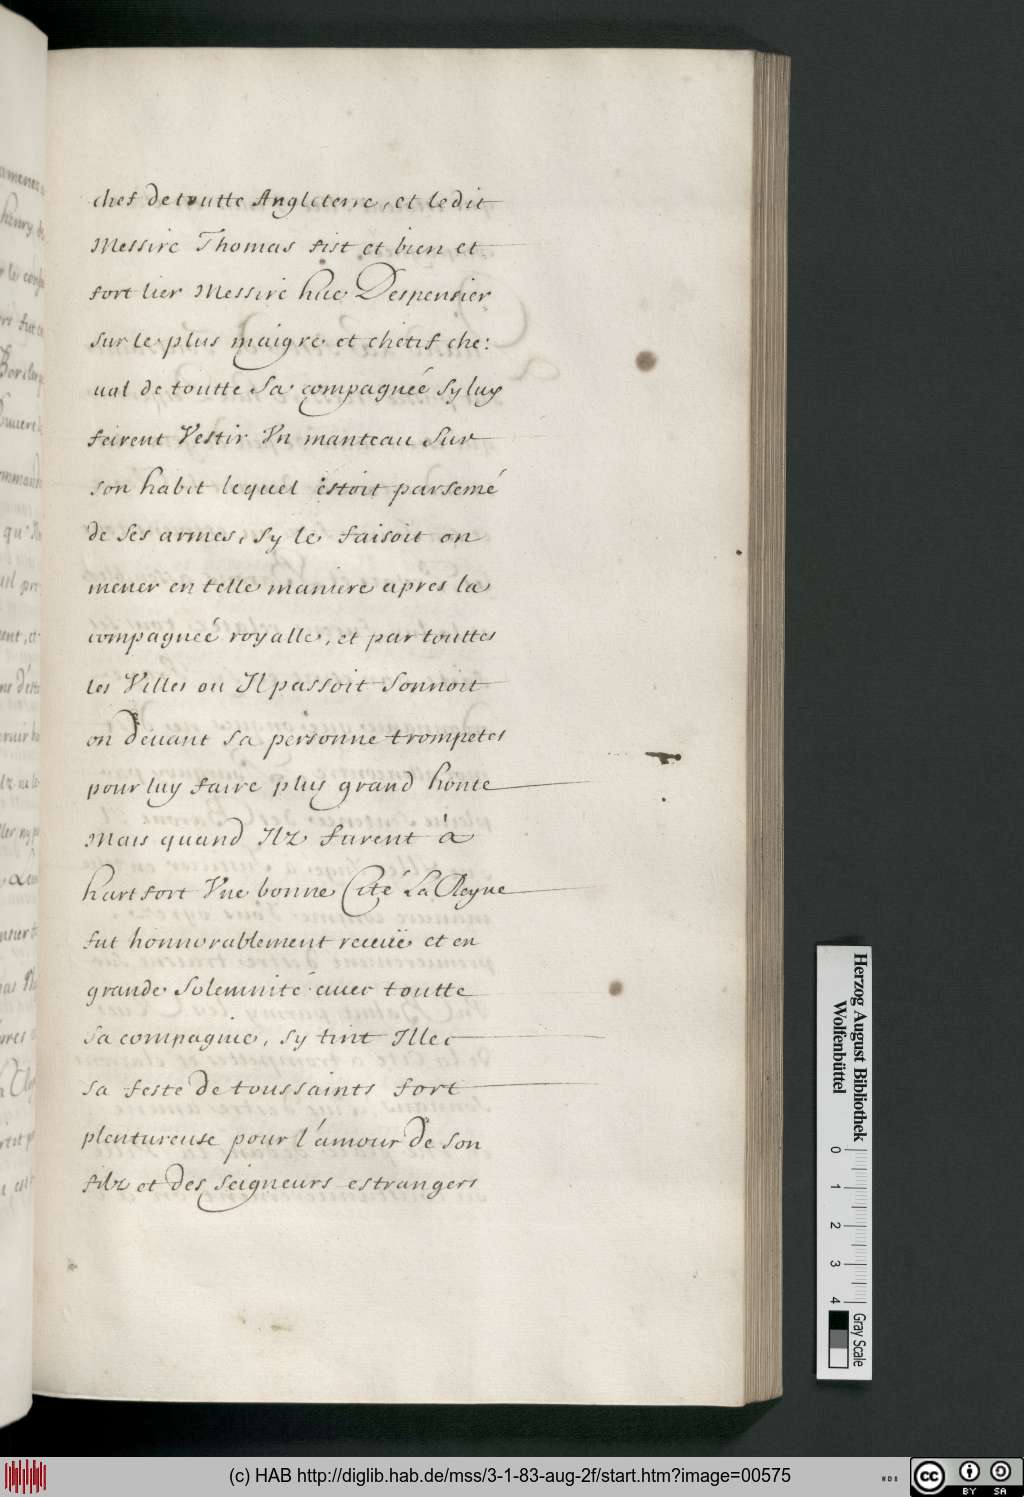 chef de toutte Angleterre, et ledit
Messire Thomas fist et bien et
fort lier Messire hue Despensier
sur le plus maigre et chetif che:
ual de toutte sa compagneé sy luy
feirent Vestir Vn manteau Sur
son habit lequel estoit parsemé
de ses armes, sy le faisoit on
mener en telle maniere apres la
compagneé royalle, et par touttes
les Villes ou Il passoit Sonnoit
on deuant sa personne trompetes
pour luy faire plus grand honte
Mais quand Ilz furent à
hartfort Vne bonne Cité La Reyne
fut honnorablement receüe et en
grande Solemnité auec toutte
sa compagnie, sy tint Illec
sa feste de toussaints fort
plentureuse pour l'amour de son
filz et des seigneurs estrangers
Herzog August Bibliothek
Wolfenbüttel
0 1 2 3 4
Gray Scale
(c) HAB http://diglib.hab.de/mss/3-1-83-aug-2f/start.htm?image=00575
cc BY SA